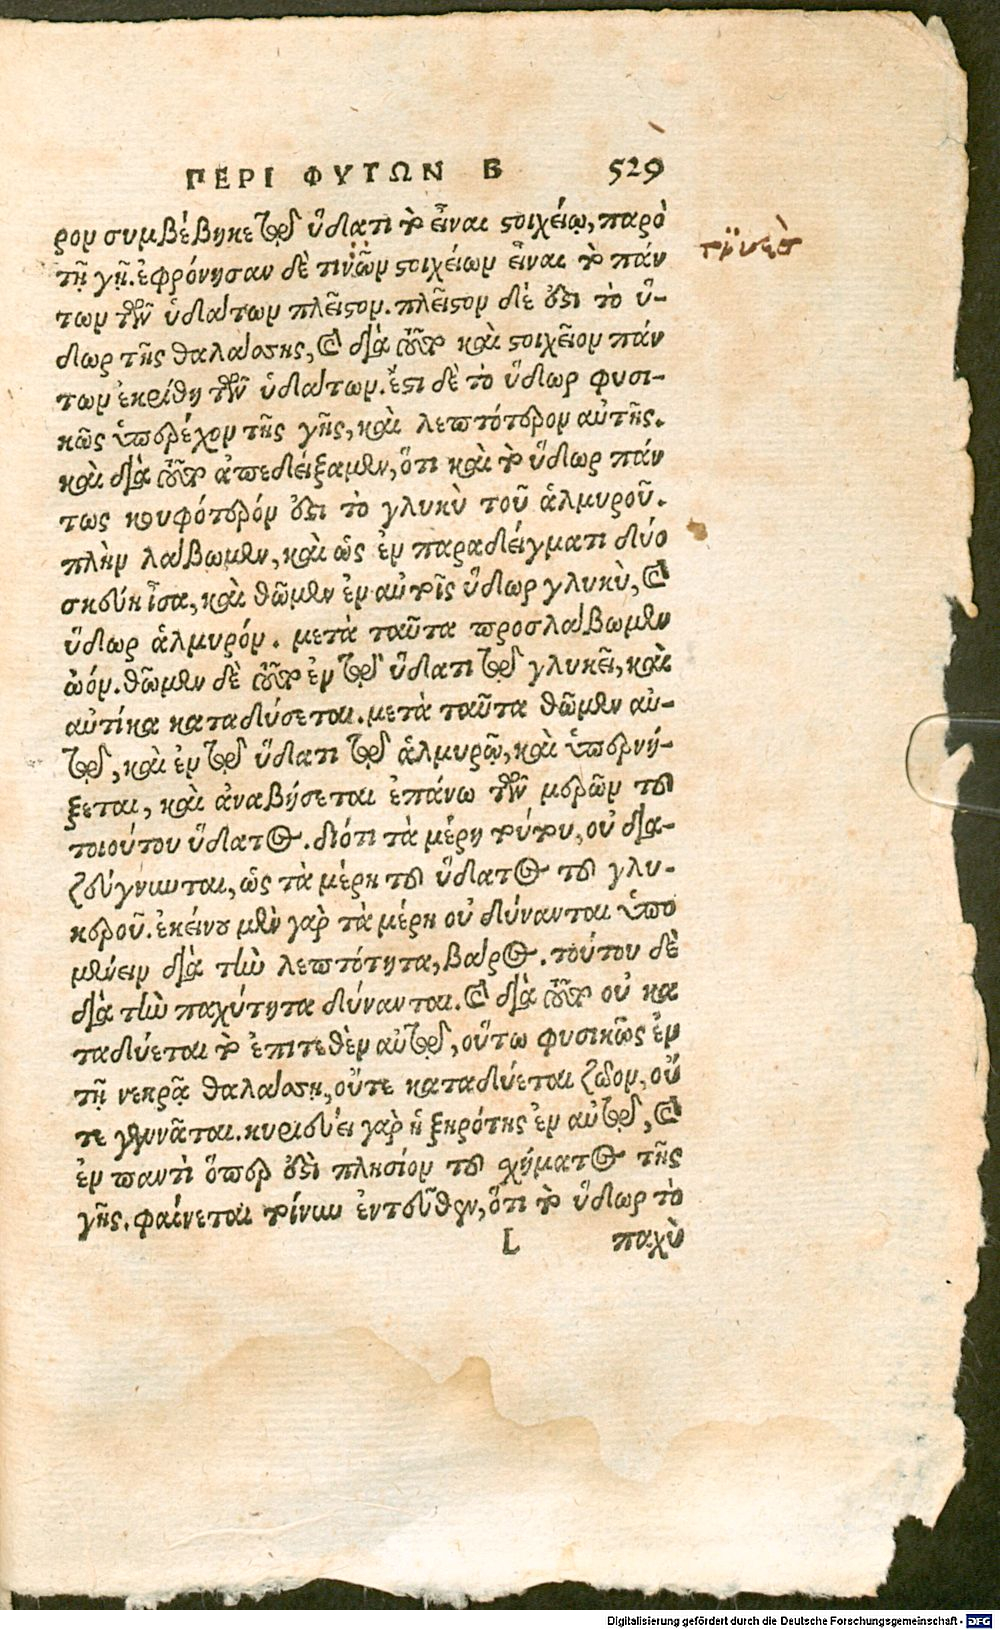 ΠΕΡΙ ΦΥΤΩΝ Β 529
ρον συμβέβηκε τῷ ὕδατι τὸ εἶναι στοιχείῳ, παρὸ
τῇ γῇ. ἐφρόνησαν δὲ τινῶν στοιχείων εἶναι τὸ πάν
των τῶν ὑδάτων πλεῖστον. πλεῖστον δέ ἐστι τὸ ὕ-
δωρ τῆς θαλάσσης, καὶ διὰ τοῦτο καὶ στοιχεῖον πάν
των ἐκρίθη τῶν ὑδάτων. ἔστι δὲ τὸ ὕδωρ φυσι-
κῶς ὑπερέχον τῆς γῆς, καὶ λεπτότερον αὐτῆς.
καὶ διὰ τοῦτο ἀπεδείξαμεν, ὅτι καὶ τὸ ὕδωρ πάν
τως κουφότερόν ἐστι τὸ γλυκὺ τοῦ ἁλμυροῦ.
πλὴν λάβωμεν, καὶ ὡς ἐν παραδείγματι δύο
σκεύη ἶσα, καὶ θῶμεν ἐν αὐτοῖς ὕδωρ γλυκὺ, καὶ
ὕδωρ ἁλμυρόν. μετὰ ταῦτα προσλάβωμεν
ὠόν. θῶμεν δὲ τοῦτο ἐν τῷ ὕδατι τῷ γλυκεῖ, καὶ
αὐτίκα καταδύσεται. μετὰ ταῦτα θῶμεν αὐ-
τῷ, καὶ ἐν τῷ ὕδατι τῷ ἁλμυρῷ, καὶ ὑπερνή-
ξεται, καὶ ἀναβήσεται ἐπάνω τῶν μερῶν τοῦ
τοιούτου ὕδατος. διότι τὰ μέρη τούτου, οὐ δια-
ζεύγνυνται, ὡς τὰ μέρη τοῦ ὕδατος τοῦ γλυ-
κεροῦ. ἐκείνου μὲν γὰρ τὰ μέρη οὐ δύνανται ὑπο
μένειν διὰ τὴν λεπτότητα, βάρος. τούτου δὲ
διὰ τὴν παχύτητα δύνανται. καὶ διὰ τοῦτο οὐ κα
ταδύεται τὸ ἐπιτεθὲν αὐτῷ, οὕτω φυσικῶς ἐν
τῇ νεκρᾷ θαλάσσῃ, οὔτε καταδύεται ζῶον, οὔ
τε γεννᾶται. κυριεύει γὰρ ἡ ξηρότης ἐν αὐτῷ, καὶ
ἐν παντὶ ὅπερ ἐστὶ πλησίον τοῦ σχήματος τῆς
γῆς. φαίνεται τοίνυν ἐντεῦθεν, ὅτι τὸ ὕδωρ τὸ
L παχὺ